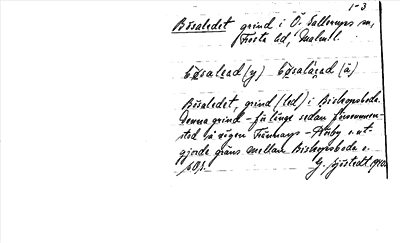 1-3
Bösaledet grind i Ö. Sallerups sn,
Frosta hd, Malm.l.
bøsalead (y) bøsalæ̀ad (ä)
Bösaledet, grind (led) i Biskopsboda.
Denna grind - för länge sedan försvunnen -
stod på vägen - Hörby o. ut-
gjorde gräns mellan Biskopsboda o.
G. Sjöstedt